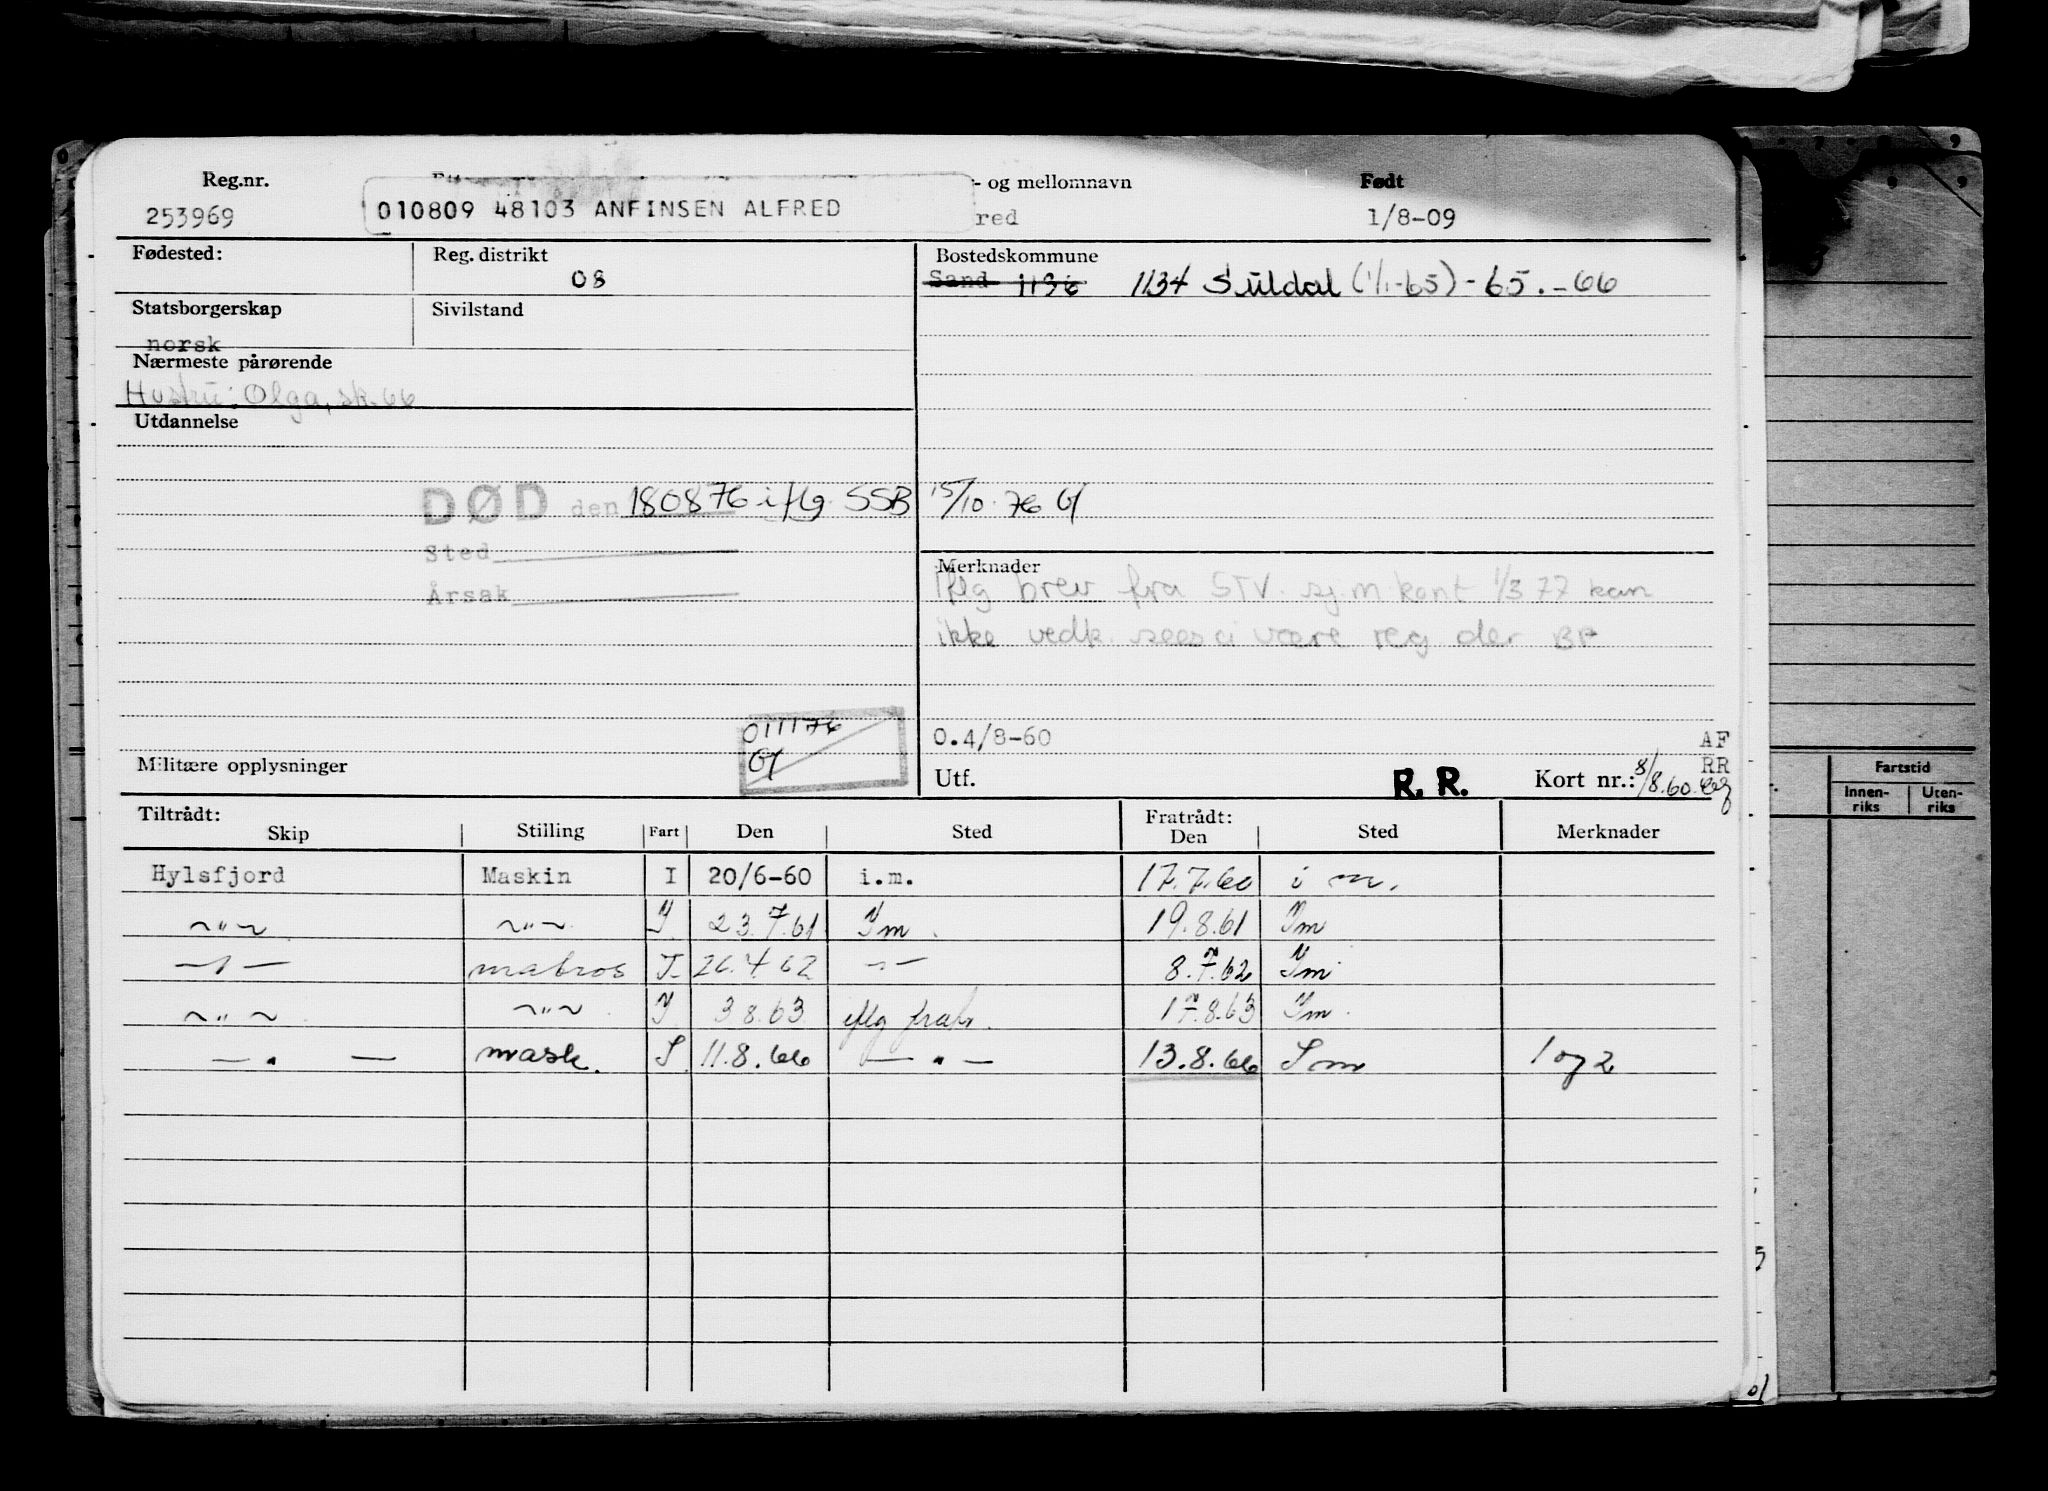 Reg.nr. - og mellomnavn Født
253969 010809 48103 ANFINSEN ALFRED red 1/8-09
Fødested: Reg. distrikt Bostedskommune
08 Sand 1136 1134 Suldal (1/1-65) - 65. - 66
Statsborgerskap Sivilstand
norsk
Nærmeste pårørende
Hustru: Olga, sk. 66
Utdannelse
DØD den 180876 iflg SSB 15/10.76
Sted
Årsak
Merknader
Iflg brev fra STV. sj.m kont 1/3 77 kan
ikke vedk. sees å være reg der
011176
0.4/8-60 AF
Militære opplysninger Utf. R. R. Kort nr.: RR
8/8.60.
Tiltrådt: Fratrådt:
Skip Stilling Fart Den Sted Den Sted Merknader
Hylsfjord Maskin I 20/6-60 i.m. 17.7.60 i m.
~"~ ~"~ I 23.7.61 Im. 19.8.61 Im
—"— matros I 26.4.62 —"— 8.7.62 Im
~"~ ~"~ I 3.8.63 iflg fratr. 17.8.63 Im.
—"— mask. I. 11.8.66 —"— 13.8.66 Im 1 og 2
Fartstid
Innen-
riks
Uten-
riks